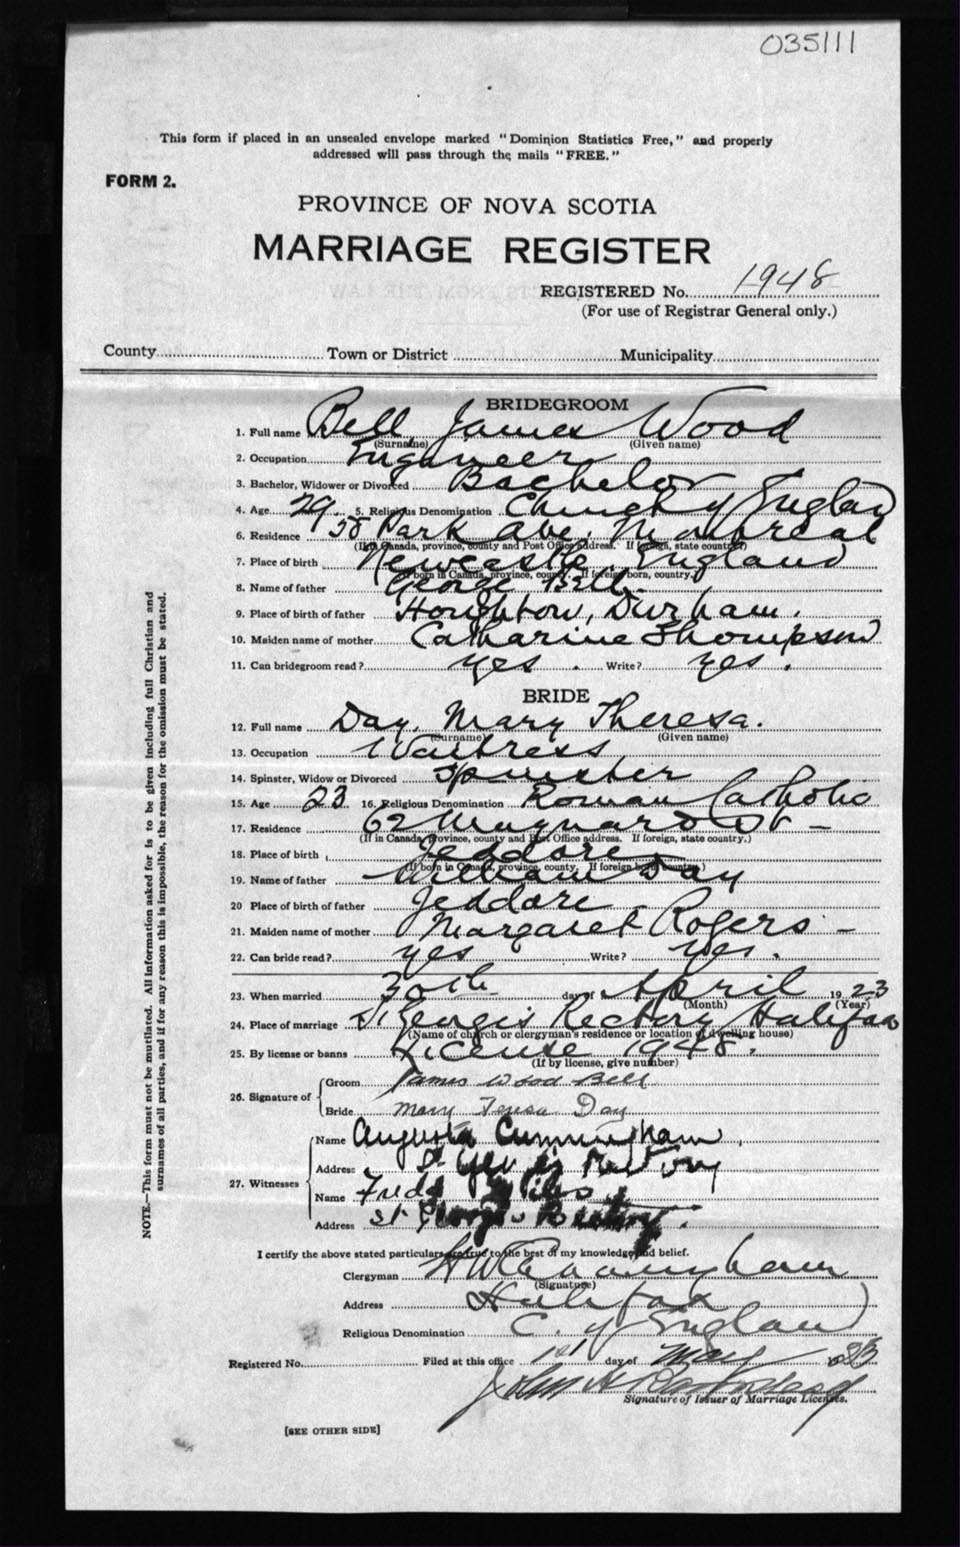 035111
This form if placed in an unsealed envelope marked "Dominion Statistics Free," and properly
addressed will pass through the mails "FREE."
FORM 2.
PROVINCE OF NOVA SCOTIA
MARRIAGE REGISTER
REGISTERED No. 1948
(For use of Registrar General only.)
County Town or District Municipality
BRIDEGROOM
1. Full name Bell, James Wood
(Surname) (Given name)
2. Occupation Engineer
3. Bachelor, Widower or Divorced Bachelor
4. Age 29 5. Religious Denomination Church of England
6. Residence 58 Park Ave, Montreal
(If in Canada, province, county and Post Office address. If foreign, state country)
7. Place of birth Newcastle, England
(If born in Canada, province, county. If foreign born, country)
8. Name of father George Bell
9. Place of birth of father Houghton, Durham.
10. Maiden name of mother Catharine Thompson
11. Can bridegroom read? yes. Write? yes.
BRIDE
12. Full name Day, Mary Theresa.
(Surname) (Given name)
13. Occupation Waitress
14. Spinster, Widow or Divorced Spinster
15. Age 23 16. Religious Denomination Roman Catholic
17. Residence 62 Maynard St -
(If in Canada, province, county and Post Office address. If foreign, state country.)
18. Place of birth Jeddore
(If born in Canada, province, county. If foreign born, country)
19. Name of father William Day
20 Place of birth of father Jeddore
21. Maiden name of mother Margaret Rogers -
22. Can bride read? yes Write? yes.
23. When married 30th day of April 1923
(Month) (Year)
24. Place of marriage St Georges Rectory Halifax
(Name of church or clergyman's residence or location of dwelling house)
25. By license or banns License 1948.
(If by license, give number)
26. Signature of Groom James Wood Bell
Bride Mary Teresa Day
27. Witnesses Name Augusta Cunningham
Address St Georges Rectory
Name Freda
Address St Georges Rectory.
I certify the above stated particulars are true to the best of my knowledge and belief.
Clergyman H W Cunningham
(Signature)
Address Halifax
Religious Denomination C. of England
Registered No. Filed at this office 1st day of May 1923
John A
Signature of Issuer of Marriage Licenses.
[SEE OTHER SIDE]
NOTE.—This form must not be mutilated. All information asked for is to be given including full Christian and
surnames of all parties, and if for any reason this is impossible, the reason for the omission must be stated.